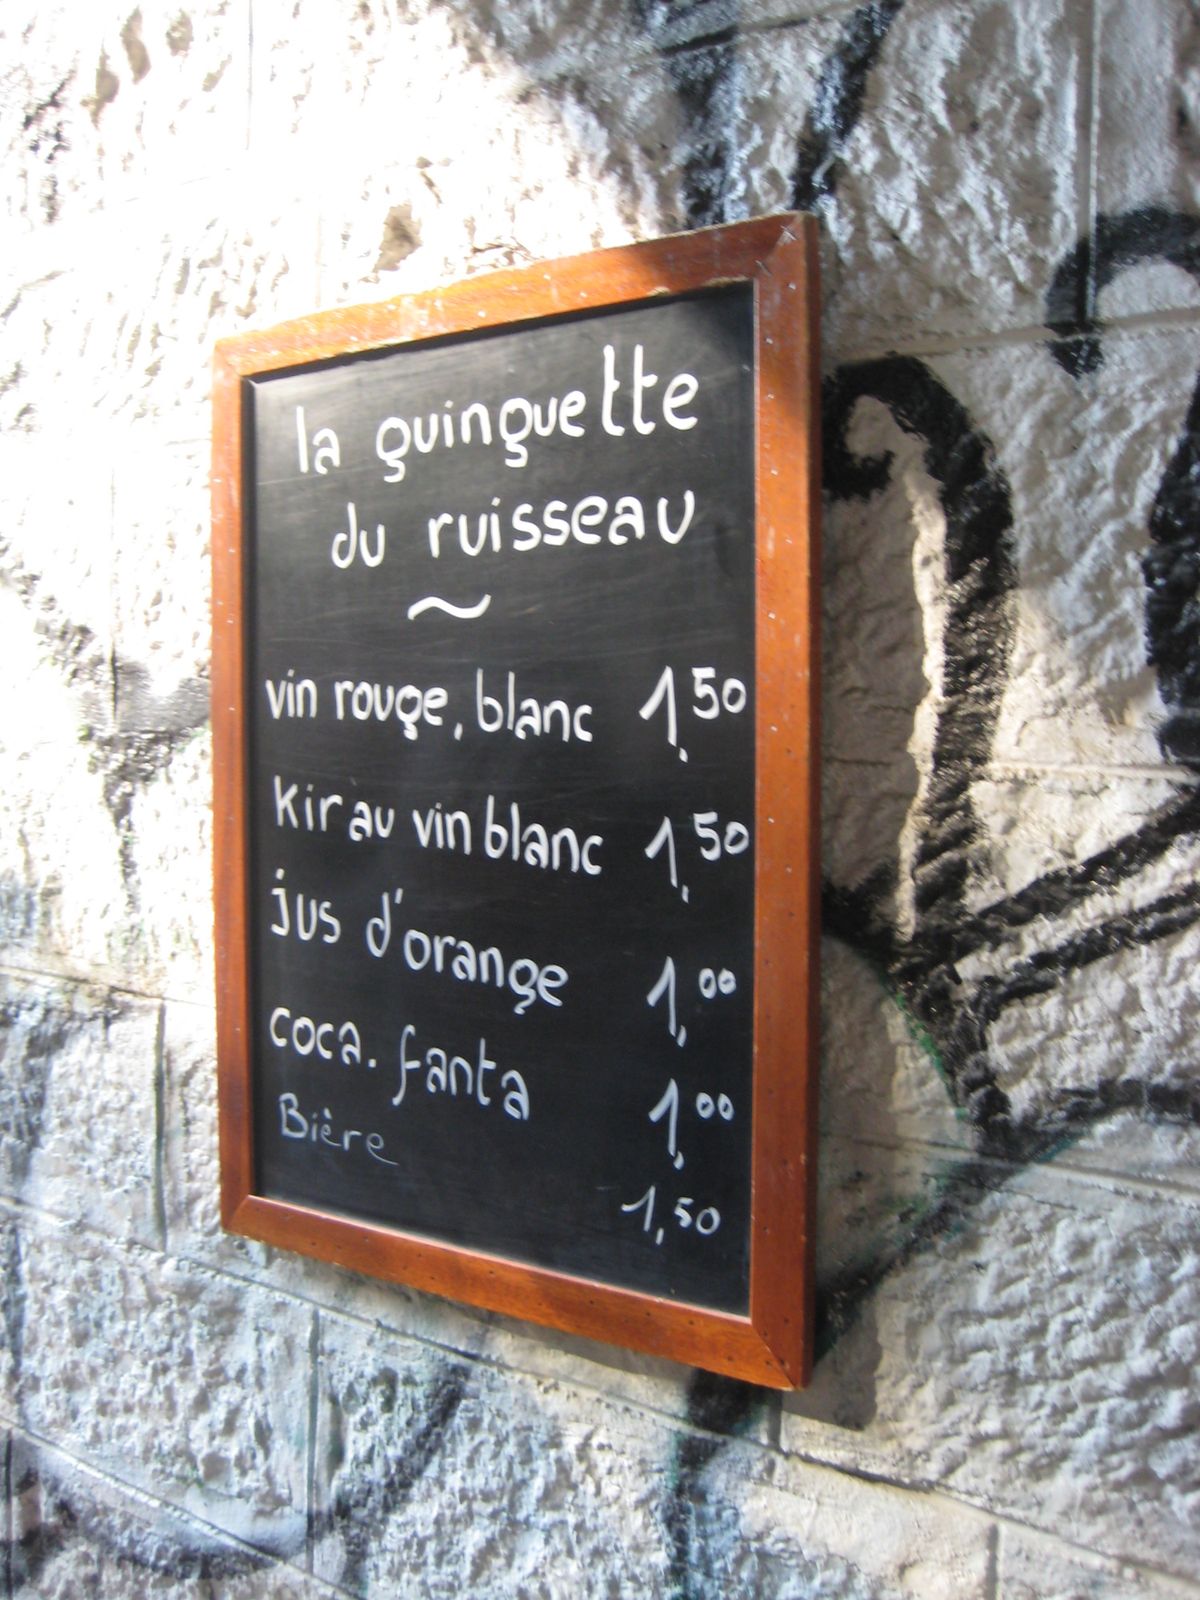 la guinguette
du ruisseau
~
vin rouge, blanc 1,50
kir au vin blanc 1,50
jus d'orange 1,00
coca. fanta 1,00
Bière 1,50